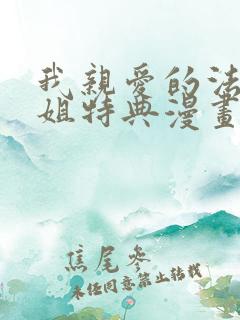 我親愛的法
姐特典漫畫
焦尾參
未經同意禁止轉載